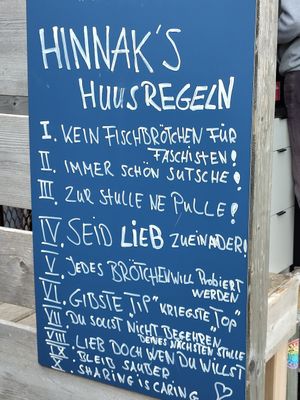 HINNAK'S
HUUSREGELN
I. KEIN FISCHBRÖTCHEN FÜR
FASCHISTEN!
II. IMMER SCHÖN SUTSCHE!
III. ZUR STULLE NE PULLE!
IV. SEID LIEB ZUEINADER!
V. JEDES BRÖTCHEN WILL PROBIERT
WERDEN
VI. GIBSTE „TIP" KRIEGSTE „TOP"
VII. DU SOLLST NICHT BEGEHREN
DEINES NÄCHSTEN STULLE
VIII. LIEB DOCH WEN DU WILLST
IX. BLEIB SAUBER
X. SHARING IS CARING ♡